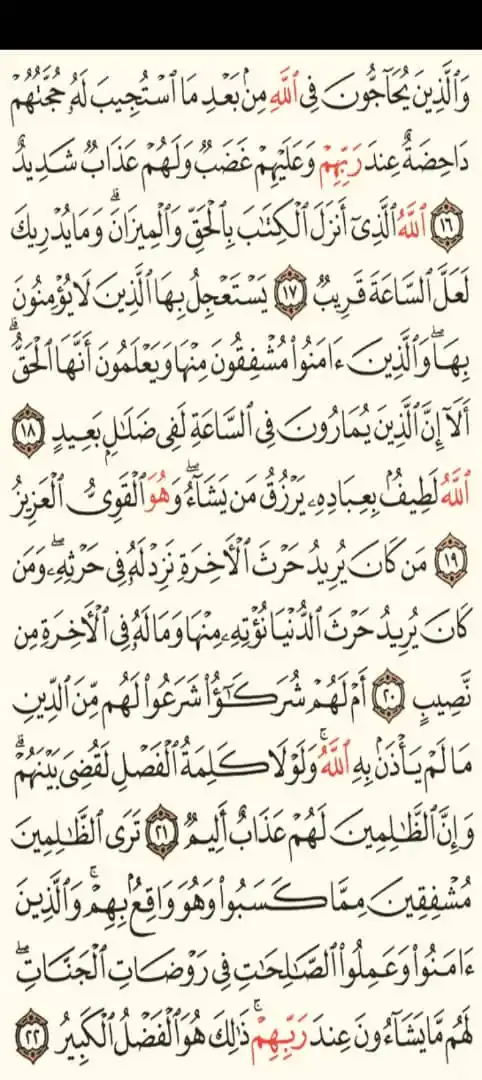 وَٱلَّذِينَ يُحَآجُّونَ فِى ٱللَّهِ مِنۢ بَعْدِ مَا ٱسْتُجِيبَ لَهُۥ حُجَّتُهُمْ
دَاحِضَةٌ عِندَ رَبِّهِمْ وَعَلَيْهِمْ غَضَبٌ وَلَهُمْ عَذَابٌ شَدِيدٌ
١٦ ٱللَّهُ ٱلَّذِىٓ أَنزَلَ ٱلْكِتَـٰبَ بِٱلْحَقِّ وَٱلْمِيزَانَ ۗ وَمَا يُدْرِيكَ
لَعَلَّ ٱلسَّاعَةَ قَرِيبٌ ١٧ يَسْتَعْجِلُ بِهَا ٱلَّذِينَ لَا يُؤْمِنُونَ
بِهَا ۖ وَٱلَّذِينَ ءَامَنُوا۟ مُشْفِقُونَ مِنْهَا وَيَعْلَمُونَ أَنَّهَا ٱلْحَقُّ ۗ
أَلَآ إِنَّ ٱلَّذِينَ يُمَارُونَ فِى ٱلسَّاعَةِ لَفِى ضَلَـٰلٍۭ بَعِيدٍ ١٨
ٱللَّهُ لَطِيفٌۢ بِعِبَادِهِۦ يَرْزُقُ مَن يَشَآءُ ۖ وَهُوَ ٱلْقَوِىُّ ٱلْعَزِيزُ
١٩ مَن كَانَ يُرِيدُ حَرْثَ ٱلْـَٔاخِرَةِ نَزِدْ لَهُۥ فِى حَرْثِهِۦ ۖ وَمَن
كَانَ يُرِيدُ حَرْثَ ٱلدُّنْيَا نُؤْتِهِۦ مِنْهَا وَمَا لَهُۥ فِى ٱلْـَٔاخِرَةِ مِن
نَّصِيبٍ ٢٠ أَمْ لَهُمْ شُرَكَـٰٓؤُا۟ شَرَعُوا۟ لَهُم مِّنَ ٱلدِّينِ
مَا لَمْ يَأْذَنۢ بِهِ ٱللَّهُ ۚ وَلَوْلَا كَلِمَةُ ٱلْفَصْلِ لَقُضِىَ بَيْنَهُمْ ۗ
وَإِنَّ ٱلظَّـٰلِمِينَ لَهُمْ عَذَابٌ أَلِيمٌ ٢١ تَرَى ٱلظَّـٰلِمِينَ
مُشْفِقِينَ مِمَّا كَسَبُوا۟ وَهُوَ وَاقِعٌۢ بِهِمْ ۗ وَٱلَّذِينَ
ءَامَنُوا۟ وَعَمِلُوا۟ ٱلصَّـٰلِحَـٰتِ فِى رَوْضَاتِ ٱلْجَنَّاتِ ۖ
لَهُم مَّا يَشَآءُونَ عِندَ رَبِّهِمْ ۚ ذَٰلِكَ هُوَ ٱلْفَضْلُ ٱلْكَبِيرُ ٢٢